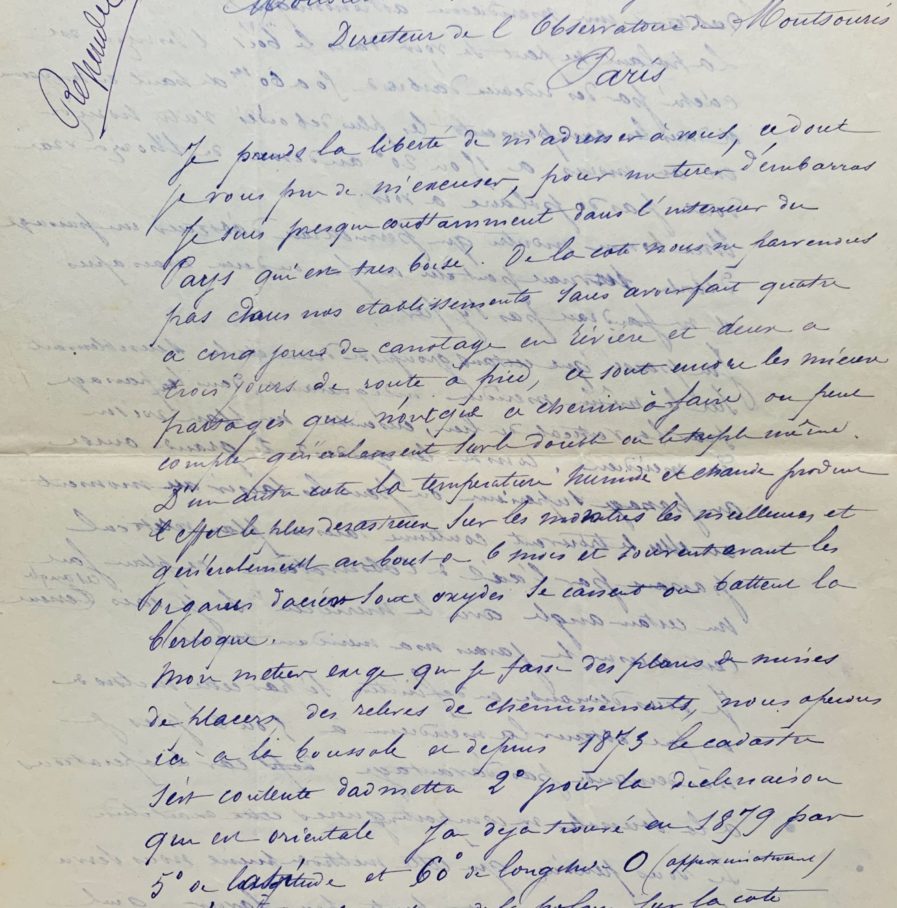 Repondu
Directeur de l'Observatoire de Montsouris
Paris
Je prends la liberté de m'adresser à vous, ce dont
je vous prie de m'excuser, pour me tirer d'embarras
Je suis presque constamment dans l'interieur du
Pays qui est tres boisé. De la cote nous ne parvenons
pas dans nos etablissements sans avoir fait quatre
a cinq jours de canotage en rivière et deux a
trois jours de route à pied, ce sont encore les mieux
partagés que n'ont que ce chemin à faire on peut
compter généralement sur le double ou le triple même.
D'un autre coté la temperature humide et chaude produit
l'effet le plus desastreux sur les montres les meilleures, et
généralement au bout de 6 mois et souvent avant les
organes d'acier sont oxydés se cassent ou battent la
berloque.
Mon metier exige que je fasse des plans de mines
de placers des relevés de cheminements, nous operons
ici a la boussole et depuis 1873 le cadastre
s'est contenté d'admettre 2° pour la declinaison
qui est orientale J'ai deja trouvé en 1879 par
5° de latitude et 60° de longitude O (approximativement)
sur la cote